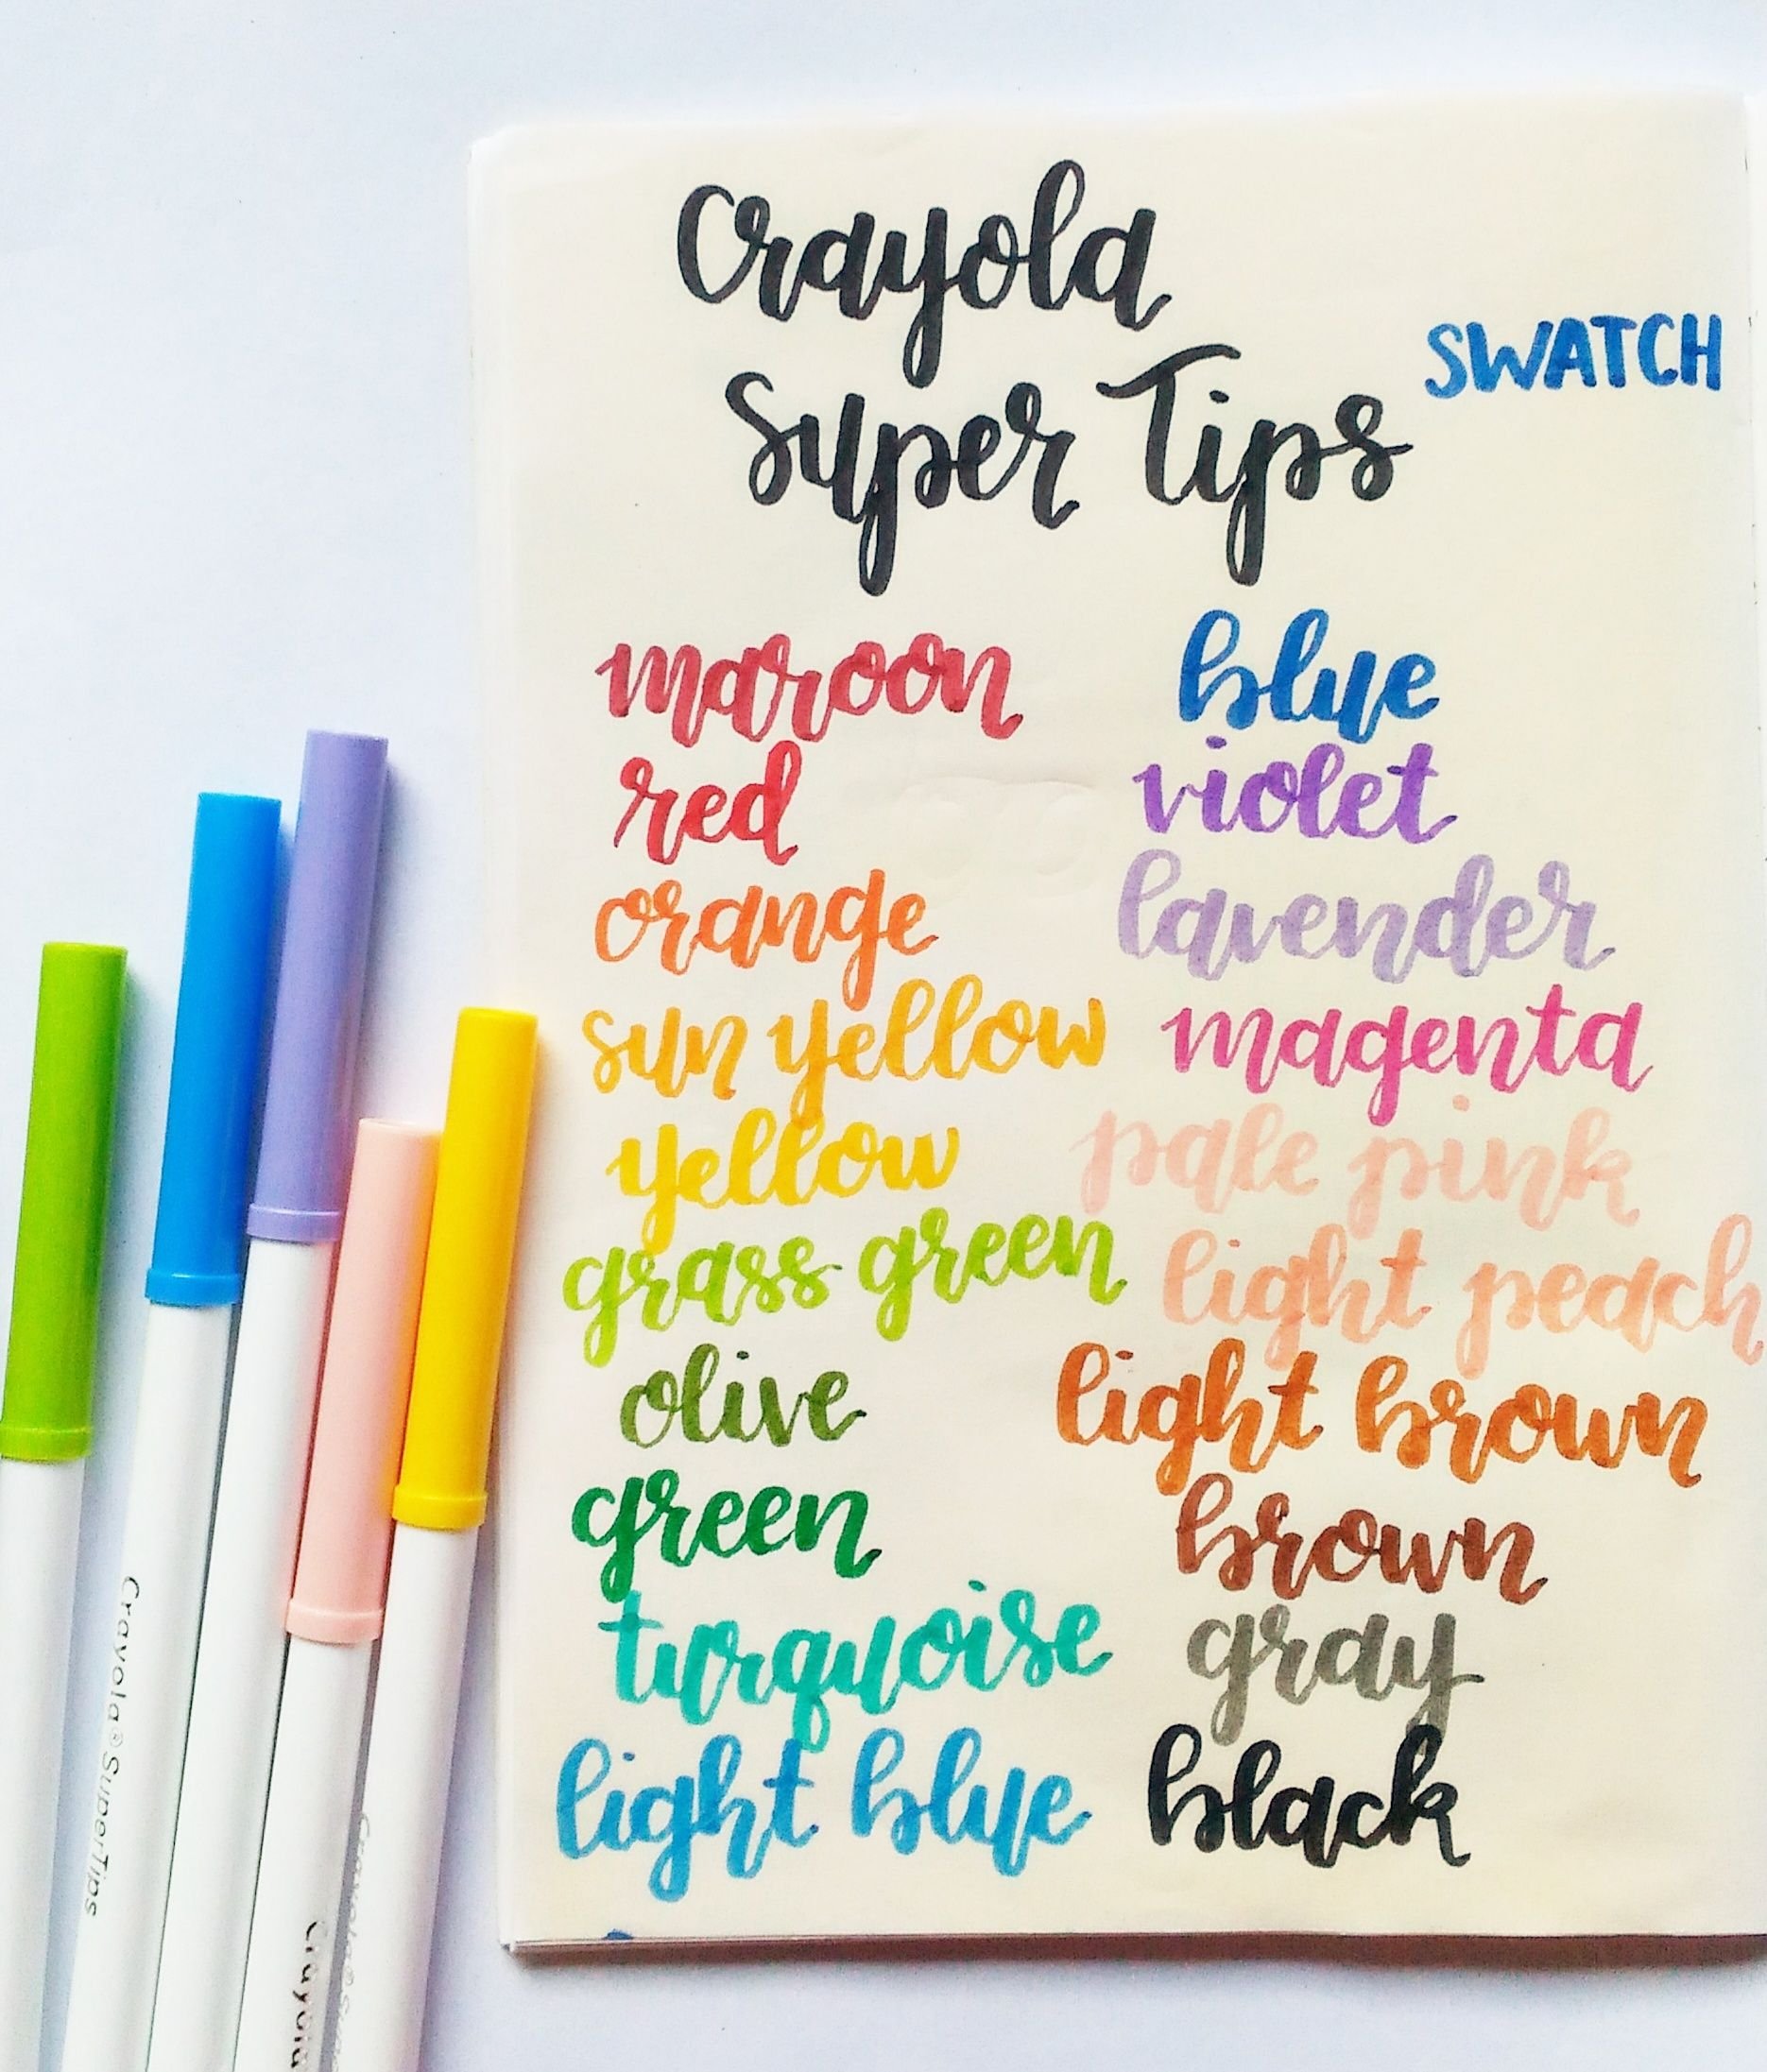 Crayola
Super Tips
SWATCH
maroon
red
orange
sun yellow
yellow
grass green
olive
green
turquoise
light blue
blue
violet
lavender
magenta
pale pink
light peach
light brown
brown
gray
black
Crayola® SuperTips
Crayola
Crayola® Super